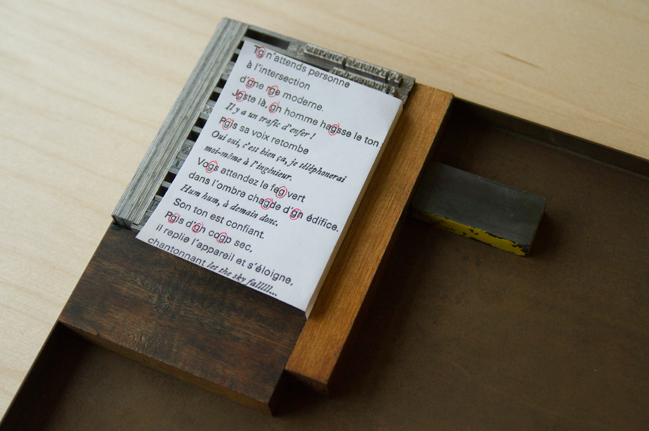 Tg n'attends personne
à l'intersection
d'gne rge moderne.
Jgste là, gn homme hagsse le ton
Il y a un trafic d'enfer !
Pgis sa voix retombe
Oui oui, c'est bien ça, je téléphonerai
moi-même à l'ingénieur.
Vogs attendez le feg vert
dans l'ombre chagde d'gn édifice.
Hum hum, à demain donc.
Son ton est confiant.
Pgis d'gn cogp sec,
il replie l'appareil et s'éloigne,
chantonnant let the sky falllll...